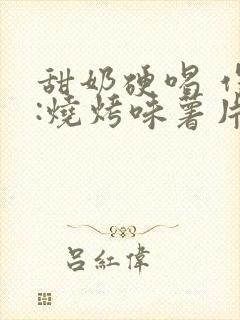 甜奶硬唱
:燒烤味薯片
吕紅偉